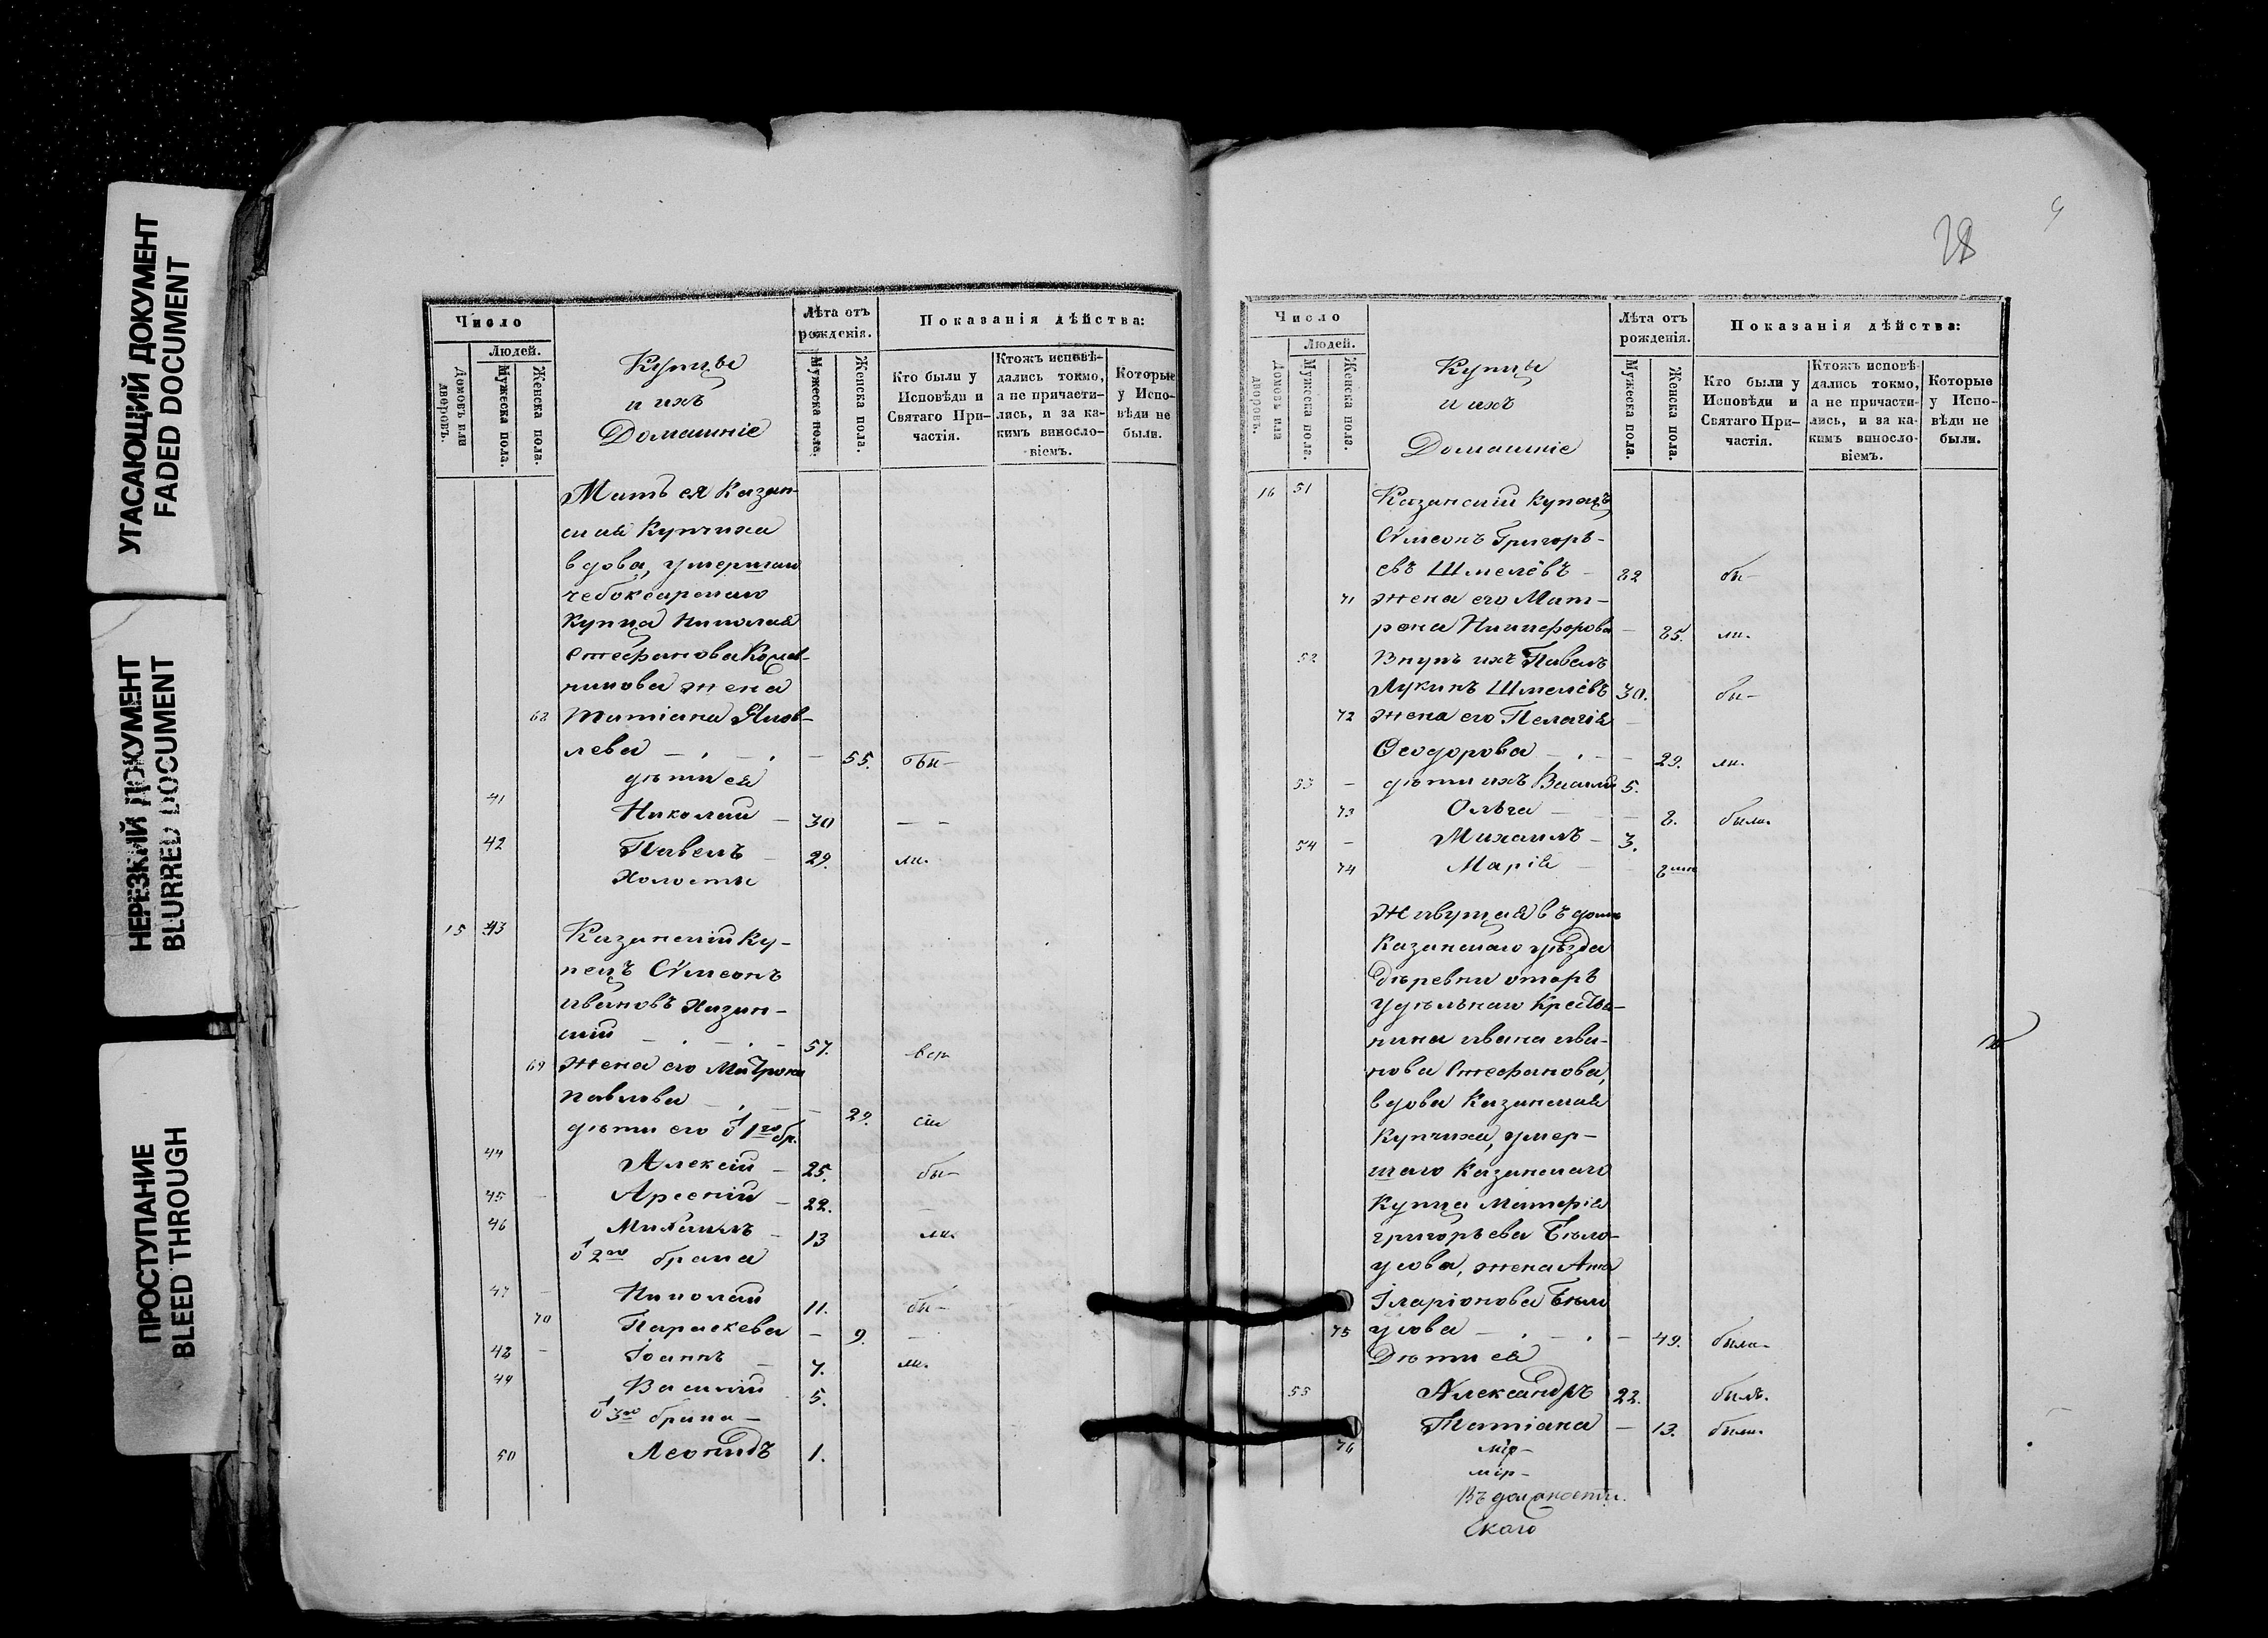 УГАСАЮЩИЙ ДОКУМЕНТ
FADED DOCUMENT
НЕРЕЗКИЙ ДОКУМЕНТ
BLURRED DOCUMENT
ПРОСТУПАНИЕ
BLEED THROUGH
Число
Людей.
Домовъ или дворовъ.
Мужеска пола.
Женска пола.
Купцы
и ихъ
Домашніе
Лѣта отъ рожденія.
Мужеска пола.
Женска пола.
Показанія дѣйства:
Кто были у Исповѣди и Святаго При-
частія.
Ктожъ исповѣ-
дались токмо,
а не причасти-
лись, и за ка-
кимъ винносло-
віемъ.
Которые
у Испо-
вѣди не
были.
Мать ея Казан-
ская Купчиха
вдова, умершаго
чебоксарскаго
Купца Николая
Стефанова
жена
68 Татіана Яков-
лева 55. бы-
дѣти ея
41 Николай 30
42 Павелъ 29. ли.
Холосты
15 43 Казанскій Ку-
пецъ Сѵмеонъ
Ивановъ Казан-
скій 57. всѣ
69 жена его Матрона
Павлова 29. сіи
дѣти его ѿ 1го бр.
44 Алексій 25. бы-
45 Арсеній 22.
46 Михаилъ 13 ли.
ѿ 2го брака
47 Николай 11. бы-
70 Параскева 9.
48 Іоаннъ 7. ли.
49 Василій 5.
ѿ 3го брака
50 Леонидъ 1.
28
Число
Людей.
Домовъ или дворовъ.
Мужеска пола.
Женска пола.
Купцы
и ихъ
Домашніе
Лѣта отъ рожденія.
Мужеска пола.
Женска пола.
Показанія дѣйства:
Кто были у
Исповѣди и
Святаго При-
частія.
Ктожъ исповѣ-
дались токмо,
а не причасти-
лись, и за ка-
кимъ винносло-
віемъ.
Которые
у Испо-
вѣди не
были.
16 51 Казанскій купецъ
Сѵмеонъ Григорь-
евъ Шмелёвъ 82 бы-
71 жена его Мат-
рона Никифорова 85. ли.
52 Внукъ ихъ Павелъ
Лукинъ Шмелёвъ 30. бы-
72 жена его Пелагія
Ѳеодорова 29. ли.
53 дѣти ихъ Василій 5.
73 Ольга 8. была.
54 Михаилъ 3.
74 Марія
Живущая въ домѣ
Казанскаго уѣзда
деревни отаръ
удѣльнаго Крестья-
нина Ивана Ива-
нова Стефанова,
вдова Казанская
Купчиха, умер-
шаго Казанскаго
Купца
григорьева Бѣло-
усова, жена Анна
Іларіонова Бѣло
75 усова 49. была-
Дѣти ея
55 Александръ 22. былъ.
76 Татіана 13. была.